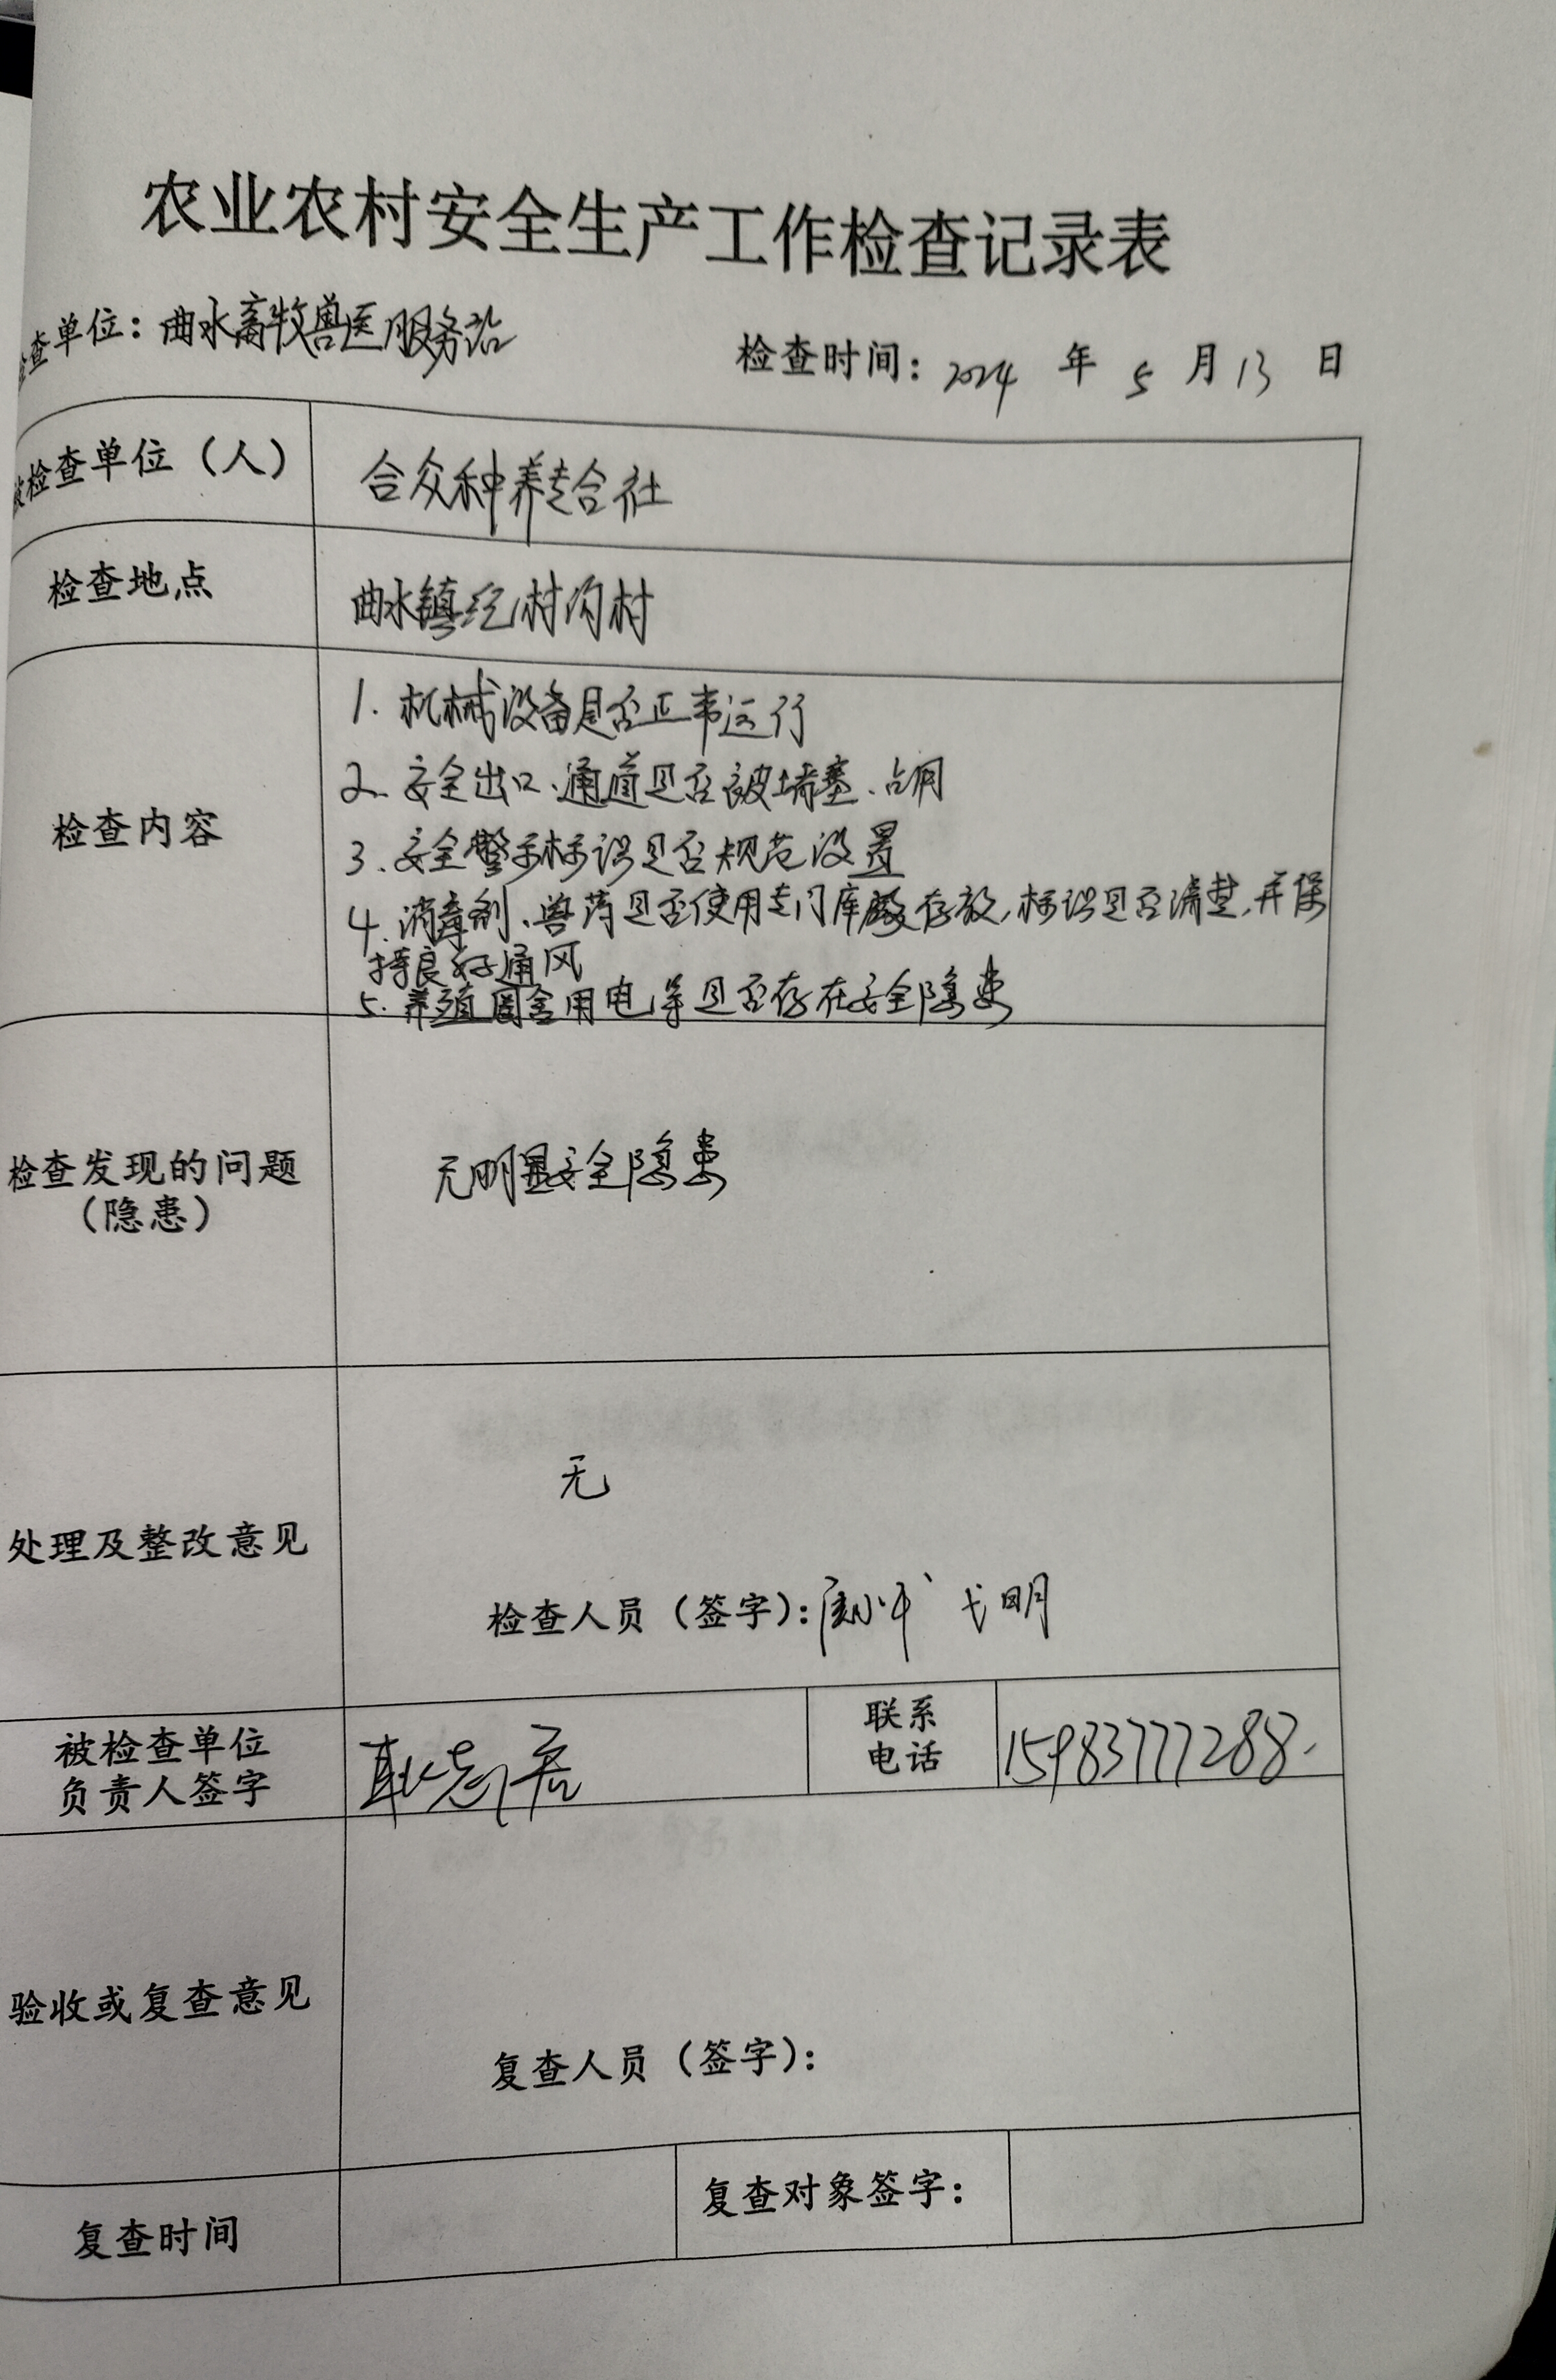 农业农村安全生产工作检查记录表
检查单位：曲水畜牧兽医服务站 检查时间：2024 年 5 月 13 日
被检查单位（人） 合众种养专合社
检查地点 曲水镇纪村沟村
检查内容
1. 机械设备是否正常运行
2. 安全出口、通道是否被堵塞、占用
3. 安全警示标识是否规范设置
4. 消毒剂、兽药是否使用专门库存放，标识是否清楚，并保
持良好通风
5. 养殖圈舍用电等是否存在安全隐患
检查发现的问题
（隐患）
无明显安全隐患
处理及整改意见
无
检查人员（签字）：
被检查单位
负责人签字
联系
电话
15983777288.
验收或复查意见
复查人员（签字）：
复查时间 复查对象签字：